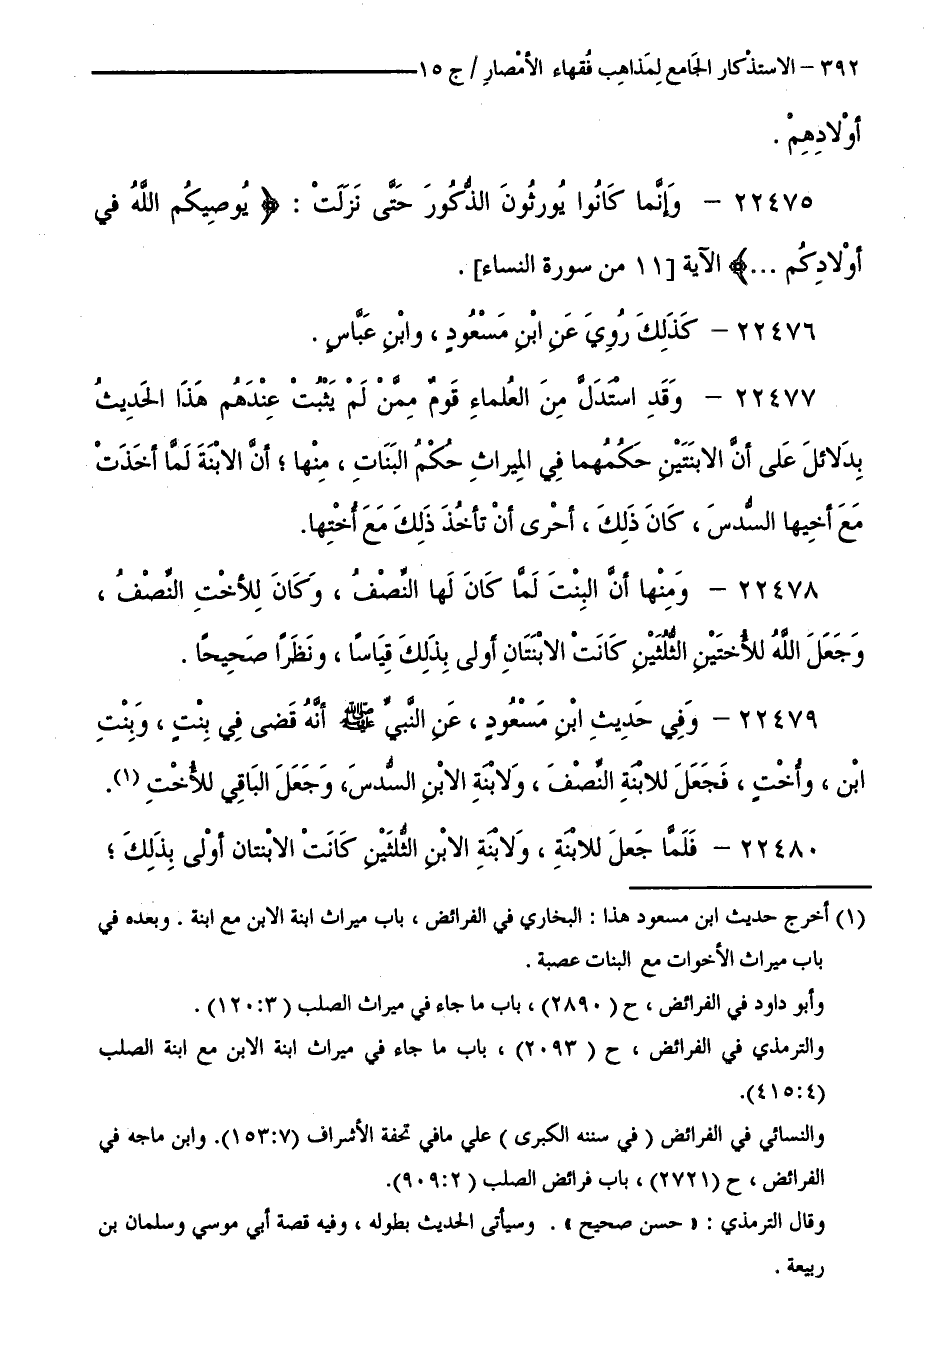 ٣٩٢ – الاستذْكار الجَامع لِمَذاهِب فُقهاء الأمْصارِ / ج ١٥
أوْلادِهِمْ .
٢٢٤٧٥ – وَإنَّما كَانُوا يُورثُونَ الذُّكُورَ حَتَّى نَزَلَتْ : ﴿ يُوصِيكُم اللَّهُ في
أوْلادِكُم ...﴾ الآية [١١ من سورة النساء] .
٢٢٤٧٦ – كَذَلِكَ رُوِيَ عَنِ ابْنِ مَسْعُودٍ ، وابْنِ عَبَّاسٍ .
٢٢٤٧٧ – وَقَدِ اسْتَدَلَّ مِنَ العُلماءِ قَومٌ مِمَّنْ لَمْ يَثْبُتْ عِنْدَهُم هَذَا الحَدِيثُ
بِدَلائلَ عَلى أنَّ الابنَتَيْنِ حَكَمُهما فِي المِيراثِ حكُمُ البَنَاتِ ، مِنْها ؛ أنَّ الابْنَةَ لَمَّا أخَذَتْ
مَعَ أخِيها السُّدسَ ، كَانَ ذَلِكَ ، أحْرى أنْ تأخُذَ ذَلِكَ مَعَ أُخْتِها.
٢٢٤٧٨ – وَمِنْها أنَّ البِنْتَ لَمَّا كَانَ لَها النِّصْفُ ، وكَانَ لِلأخْتِ النِّصْفُ ،
وَجَعَلَ اللَّهُ للأُختَيْنِ الثُّلُثَيْنِ كَانَتْ الابْنَتَانِ أولى بِذَلِكَ قِيَاسًا ، ونَظَرًا صَحِيحًا .
٢٢٤٧٩ – وَفِي حَدِيثِ ابْنِ مَسْعُودٍ ، عَنِ النَّبيِّ ﷺ أنَّهُ قَضى فِي بِنْتٍ ، وَبِنْتِ
ابْن ، وأُخْتٍ ، فَجَعَلَ للابْنَةِ النِّصْفَ ، وَلابْنَةِ الابْنِ السُّدسَ، وَجَعَلَ البَاقِي للأُخْتِ (١).
٢٢٤٨٠ – فَلَمَّا جَعَلَ للابْنَةِ ، وَلابْنَةِ الابْنِ الثُّلثَيْنِ كَانَتْ الابْنتان أوْلى بِذَلِكَ ؛
(١) أخرج حديث ابن مسعود هذا : البخاري في الفرائض ، باب ميراث ابنة الابن مع ابنة . وبعده في
باب ميراث الأخوات مع البنات عصبة .
وأبو داود في الفرائض ، ح ( ٢٨٩٠) ، باب ما جاء في ميراث الصلب ( ١٢٠:٣) .
والترمذي في الفرائض ، ح ( ٢٠٩٣) ، باب ما جاء في ميراث ابنة الابن مع ابنة الصلب
(٤١٥:٤).
والنسائي في الفرائض ( في سننه الكبرى ) علي مافي تحفة الأشراف (١٥٣:٧). وابن ماجه في
الفرائض ، ح (٢٧٢١) ، باب فرائض الصلب ( ٩٠٩:٢).
وقال الترمذي : « حسن صحيح » . وسيأتى الحديث بطوله ، وفيه قصة أبي موسي وسلمان بن
ربيعة .